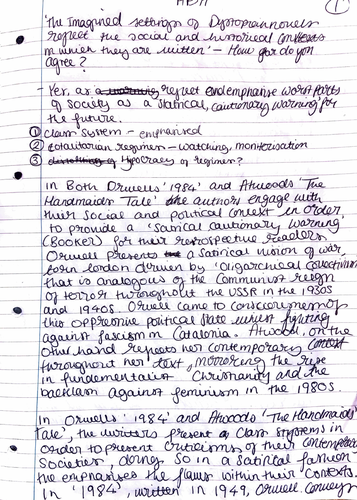 1
'The Imagined settings of Dystopian novels
reflect the social and historical contexts
in which they are written' - How far do you
agree?
- Yes, as a reflect and emphasise worst parts
of society as a satirical, cautionary warning for
the future.
1 Class system - emphasised
2 totalitarian regimes - watching, monitorisation
3 Hypocracy of regimes?
In Both Orwells '1984' and Atwoods 'The
Handmaids Tale' the authors engage with
their social and political context in order
to provide a 'Satirical cautionary warning'
(BOOKER) for their retrospective readers.
Orwell presents a satirical vision of war
torn london driven by 'Oligarchical collectivism'
that is analogous of the Communist reign
of terror throughout the USSR in the 1930s
and 1940s. Orwell came to consciousness of
this oppressive political state whilst fighting
against fascism in Catalonia. Atwood, on the
other hand reflects her contemporary context
throughout her text, mirroring the rise
in fundementalist Christianity and the
backlash against feminism in the 1980s.
In Orwells '1984' and Atwoods 'The Handmaids
Tale', the writers present Class systems in
order to present criticisms of their contemporary
Societies, doing so in a satirical fashion
the emphasises the flaws within their contexts.
In '1984', written in 1949, Orwell conveys